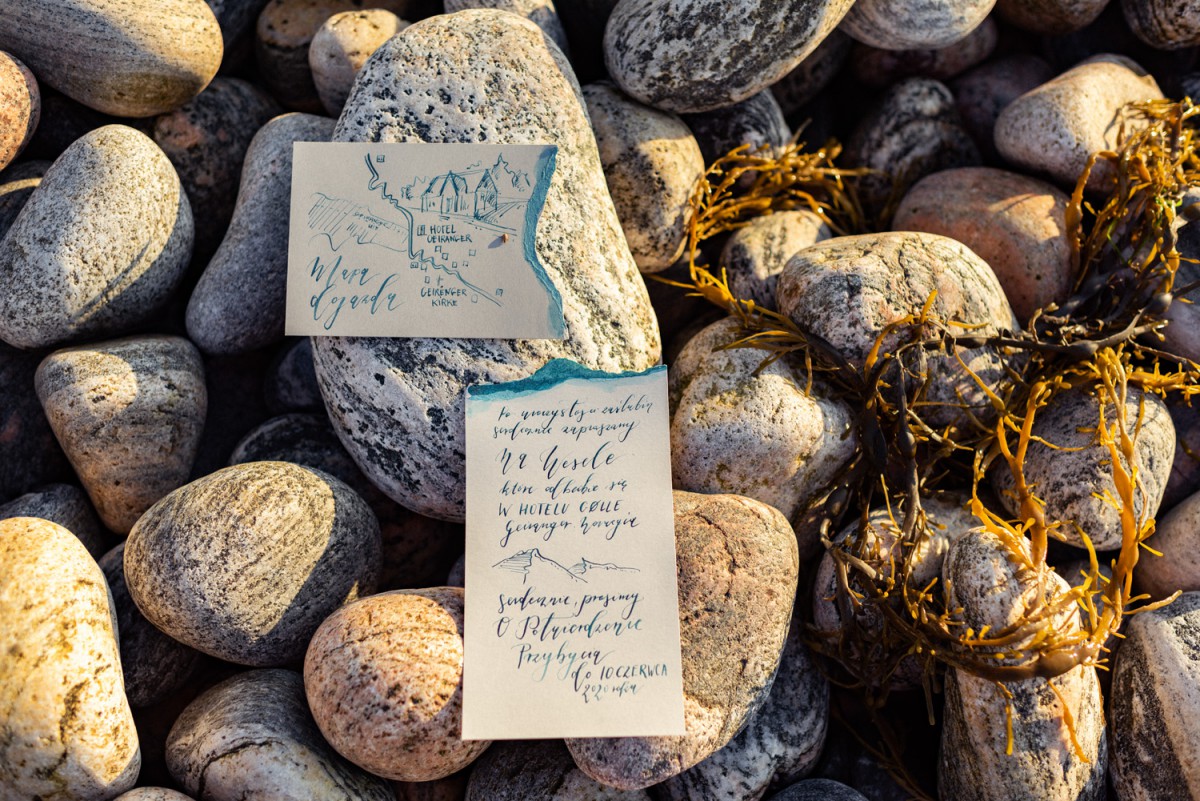 HOTEL
GEIRANGER
Mapa
dojazdu
GEIRENGER
KIRKE
Po uroczystości zaślubin
serdecznie zapraszamy
Na Wesele
które odbędzie się
W HOTELU GØLLE
Geiranger Norwegia
Serdecznie prosimy
O Potwierdzenie
Przybycia
do 10 CZERWCA
2020 roku